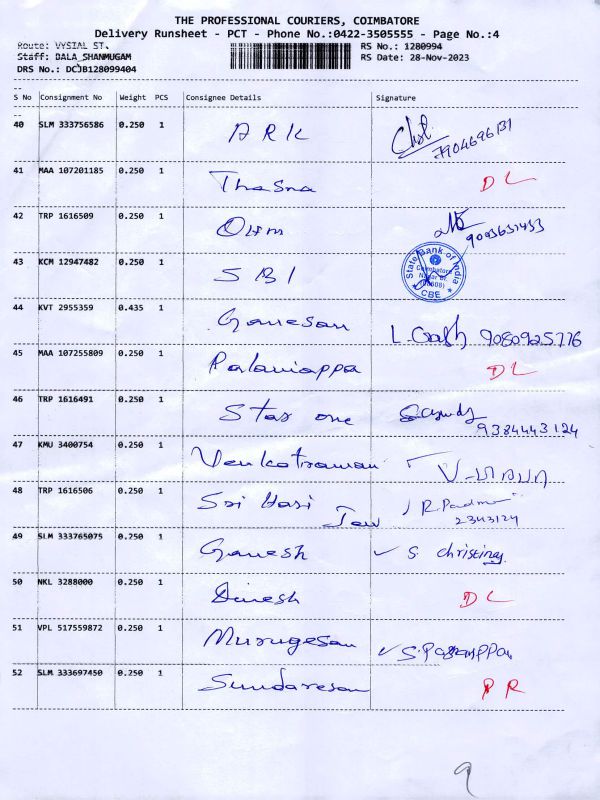 THE PROFESSIONAL COURIERS, COIMBATORE
Delivery Runsheet - PCT - Phone No.:0422-3505555 - Page No.:4
Route: VYSIAL ST.
RS No.: 1280994
Staff: BALA_SHANMUGAM
RS Date: 28-Nov-2023
DRS No.: DCJB128099404
S No Consignment No Weight PCS Consignee Details Signature
40 SLM 333756586 0.250 1 ARK
7904696131
41 MAA 107201185 0.250 1 Thasna DL
42 TRP 1616509 0.250 1
43 KCM 12947482 0.250 1 SBI
State Bank of India
Coimbatore
CBE
44 KVT 2955359 0.435 1 Ganesan
9080925776
45 MAA 107255809 0.250 1 Palaniappa DL
46 TRP 1616491 0.250 1 Star one
9384443124
47 KMU 3400754 0.250 1 Venkatraman
48 TRP 1616506 0.250 1 Sri Hari
2343124
49 SLM 333765075 0.250 1 Ganesh ✓ S. Christiny
50 NKL 3288000 0.250 1 Dinesh DL
51 VPL 517559872 0.250 1 Murugesan ✓
52 SLM 333697450 0.250 1 Sundaresan
9